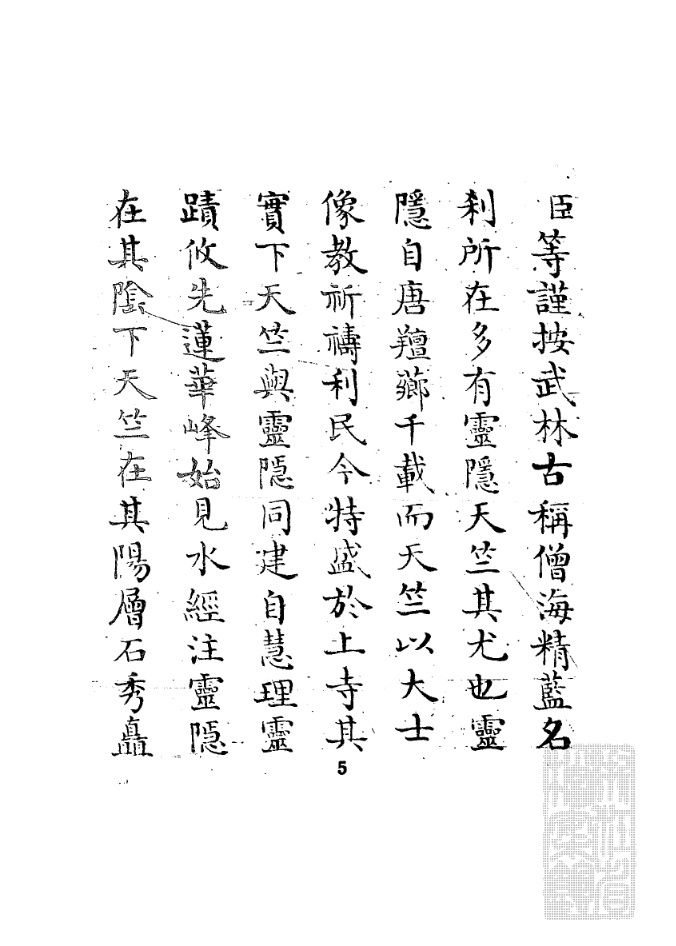 臣等謹按武林古稱僧海精藍名
刹所在多有靈隱天竺其尤也靈
隱自唐羶薌千載而天竺以大士
像教祈禱利民今特盛於上寺其
實下天竺與靈隱同建自慧理靈
蹟攸先蓮華峰始見水經注靈隱
在其陰下天竺在其陽層石秀矗
5